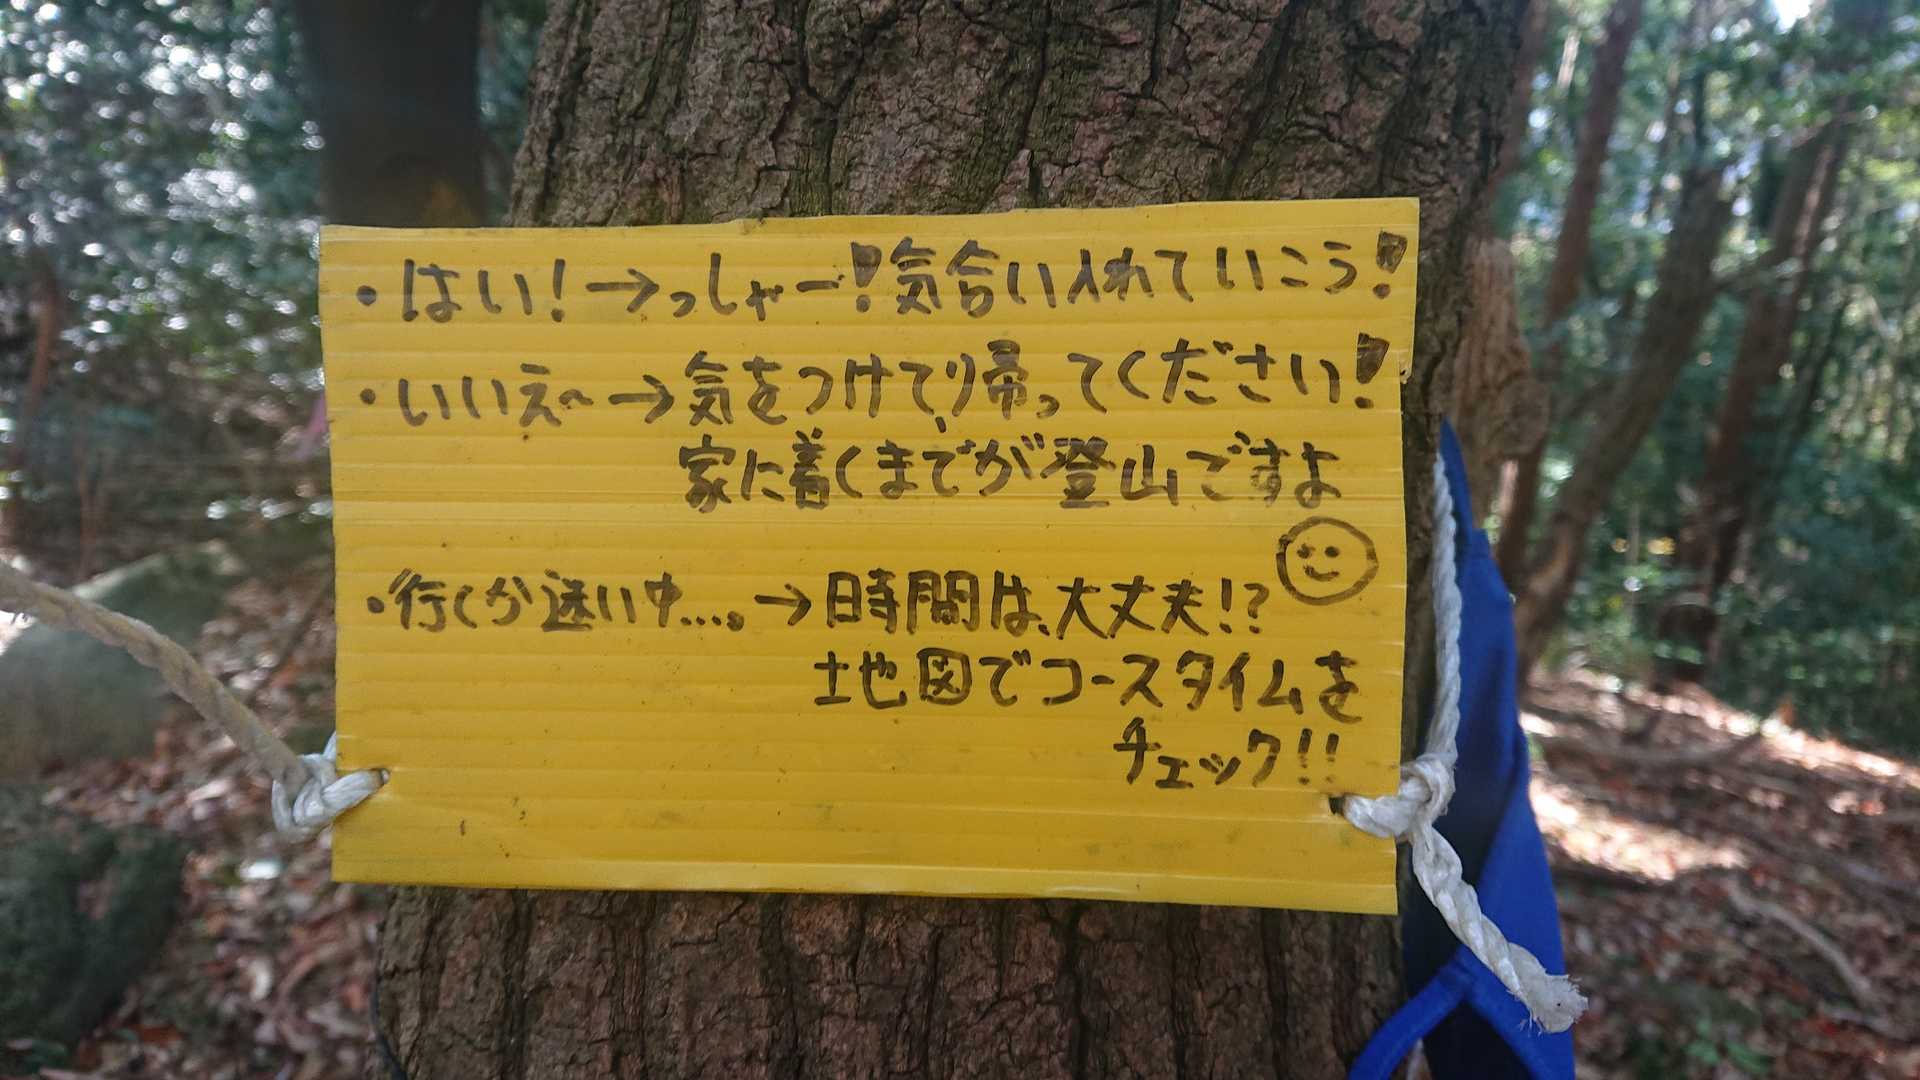 ・はい！→っしゃー！気合い入れていこう！
・いいえ～→気をつけて、帰ってください！
家に着くまでが登山ですよ
・行くか迷い中…。→時間は、大丈夫！？
地図でコースタイムを
チェック！！